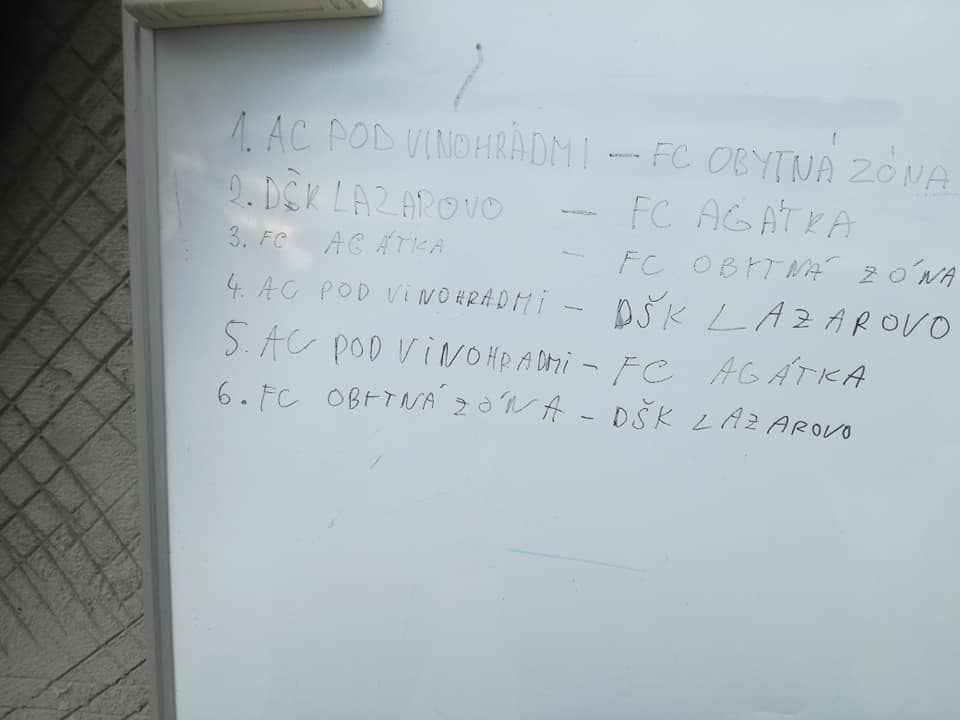 1. AC POD VINOHRÁDMI - FC OBYTNÁ ZÓNA
2. DŠK LAZAROVO - FC AGÁTKA
3. FC AGÁTKA - FC OBYTNÁ ZÓNA
4. AC POD VINOHRADMI - DŠK LAZAROVO
5. AC POD VINOHRADMI - FC AGÁTKA
6. FC OBYTNÁ ZÓNA - DŠK LAZAROVO